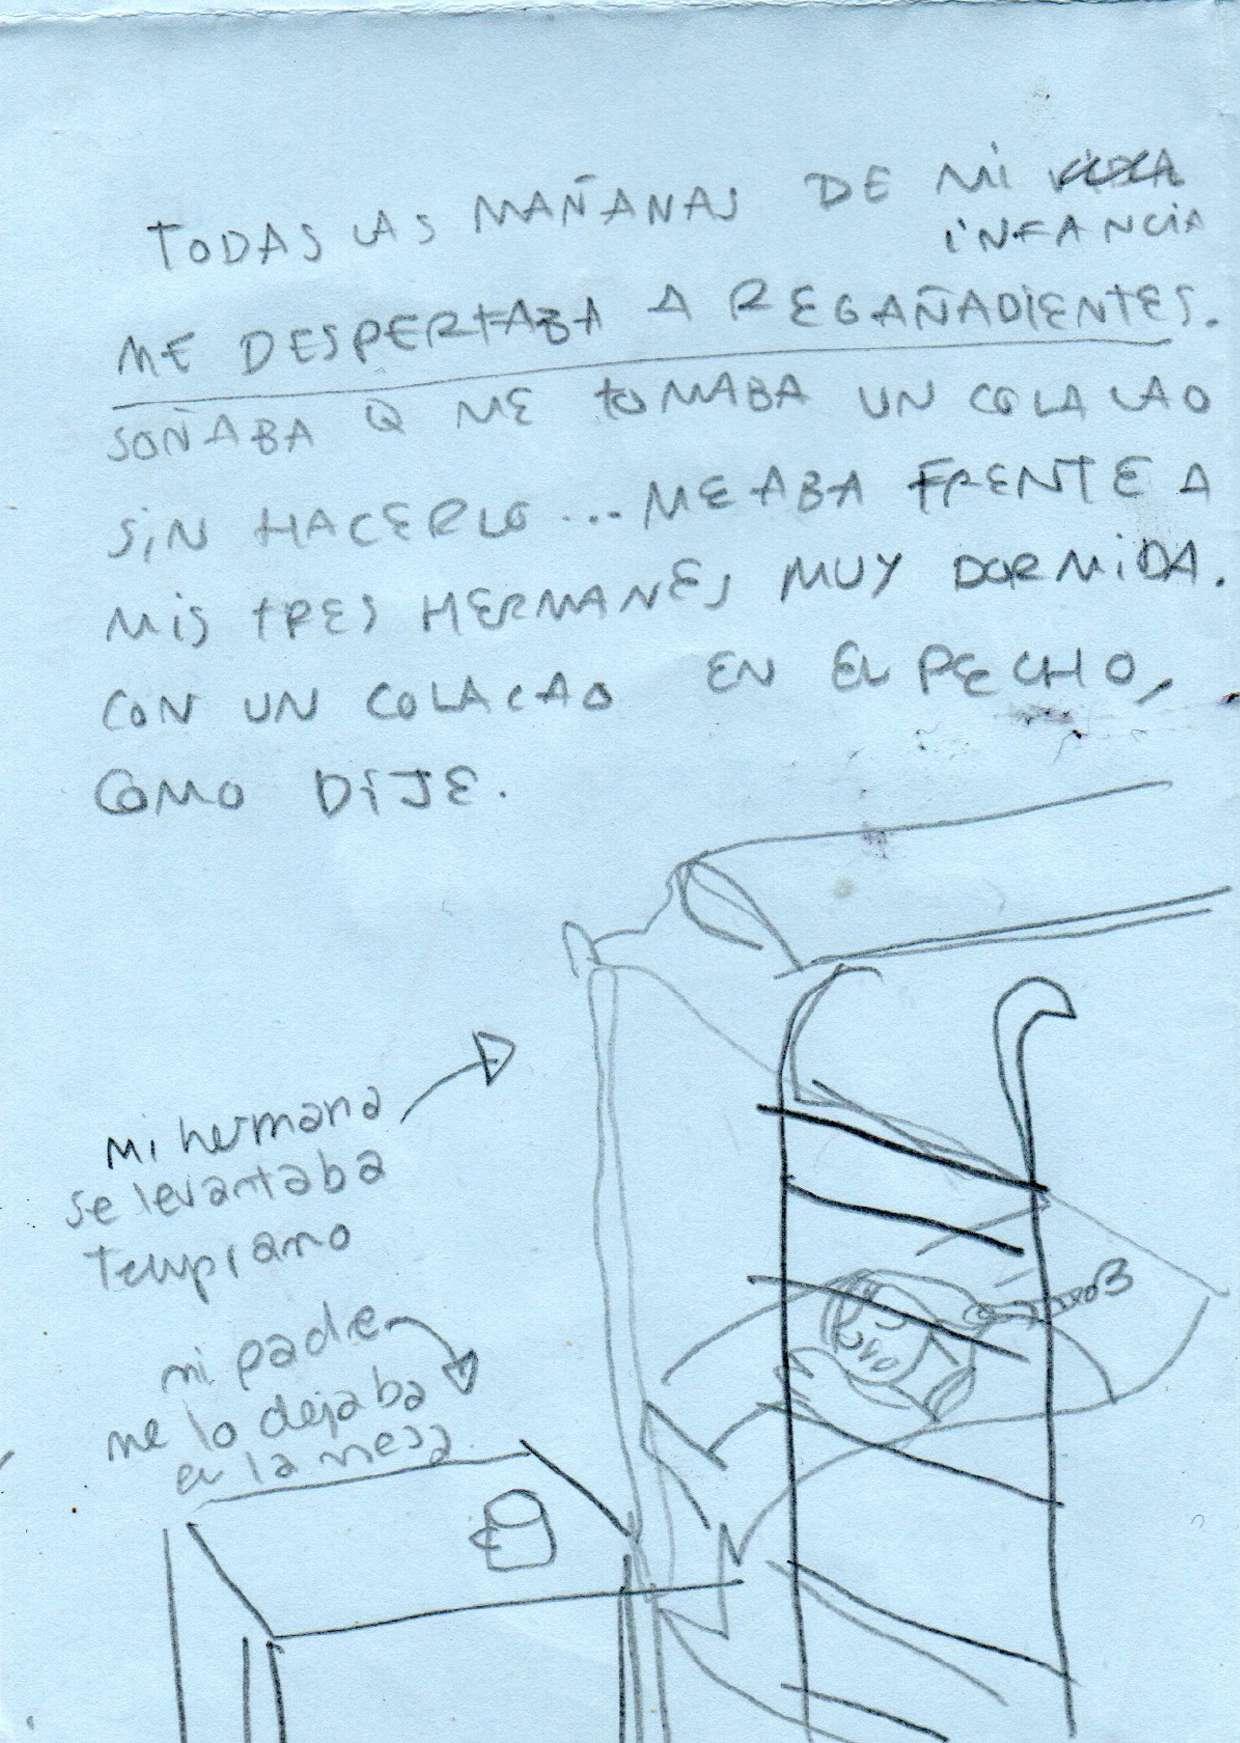 TODAS LAS MAÑANAS DE MI VIDA
INFANCIA
ME DESPERTABA A REGAÑADIENTES.
SOÑABA Q ME TOMABA UN COLA CAO
SIN HACERLO... MEABA FRENTE A
MIS TRES HERMANES, MUY DORMIDA.
CON UN COLACAO EN EL PECHO,
COMO DIJE.
mi hermana
se levantaba
temprano
mi padre
me lo dejaba
en la mesa